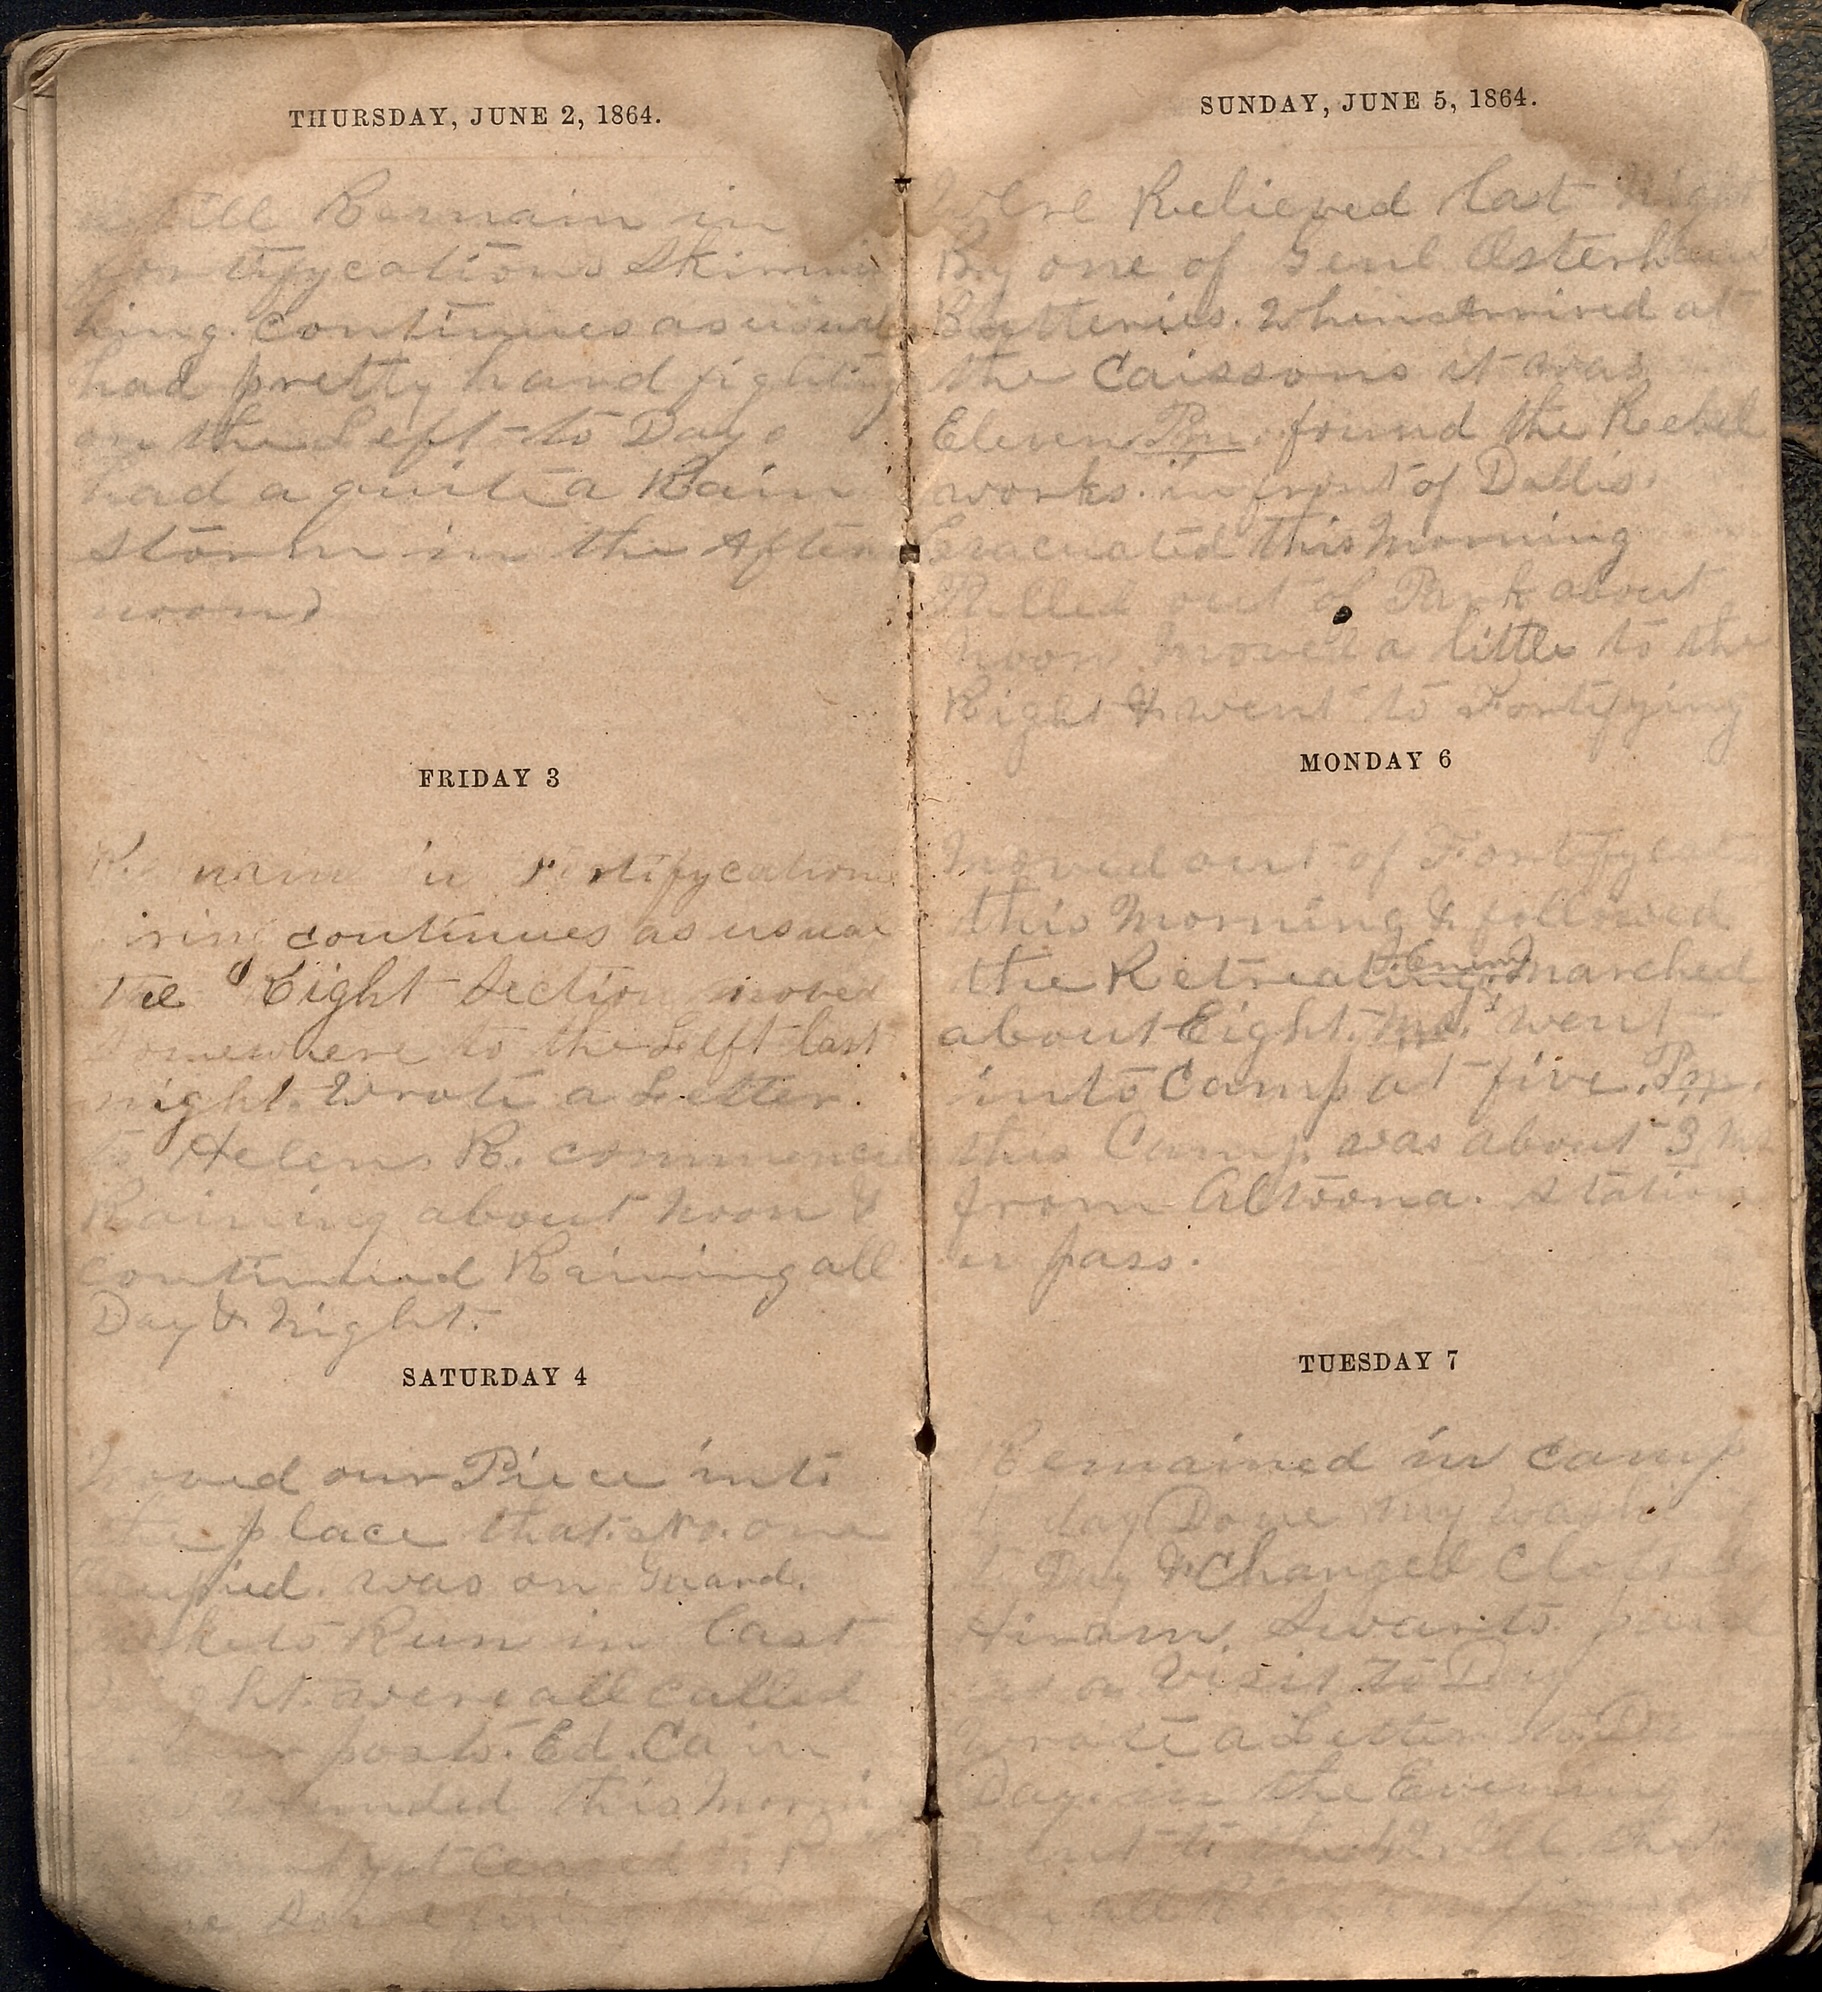 THURSDAY, JUNE 2, 1864.
still Remain in
fortifycations Skirmis
hing. continues as usual
had pretty hard fighting
on the Left to Day.
had a quite a Rain
storm in the After
noon.
FRIDAY 3
Remain in Fortifycations
firing continues as usual
the Right Section moved
somewhere to the Left last
night. Wrote a Letter.
to Helen R. commenced
Raining about Noon &
continued Raining all
Day & Night.
SATURDAY 4
Moved our Piece into
the place that No. one
occupied. was on Guard.
Run in last
night. were all called
our posts. Ed. Cain
was wounded this Morning
not yet ceased
some
SUNDAY, JUNE 5, 1864.
Were Relieved last Night
By one of Genl Osterhaus
Batteries. When Arrived at
the Caissons it was
Eleven Pm. found the Rebel
works. in front of Dallis.
Evacuated this Morning
Pulled out of Park about
Noon Moved a little to the
Right & went to Fortifying
MONDAY 6
Moved out of Fortifycations
this Morning & followed
the Retreating Enemy. Marched
about Eight. Ml's. went
into Camp at five. Pm.
this Camp. was about 3 Ml
from Altoona. station
or pass.
TUESDAY 7
Remained in camp
to day Done My washing
to Day & Changed Clothes
Hiram. Swarts. paid
us a Visit to Day
Wrote a Letter to
Day. in the Evening
went to the 42. Ill.
all